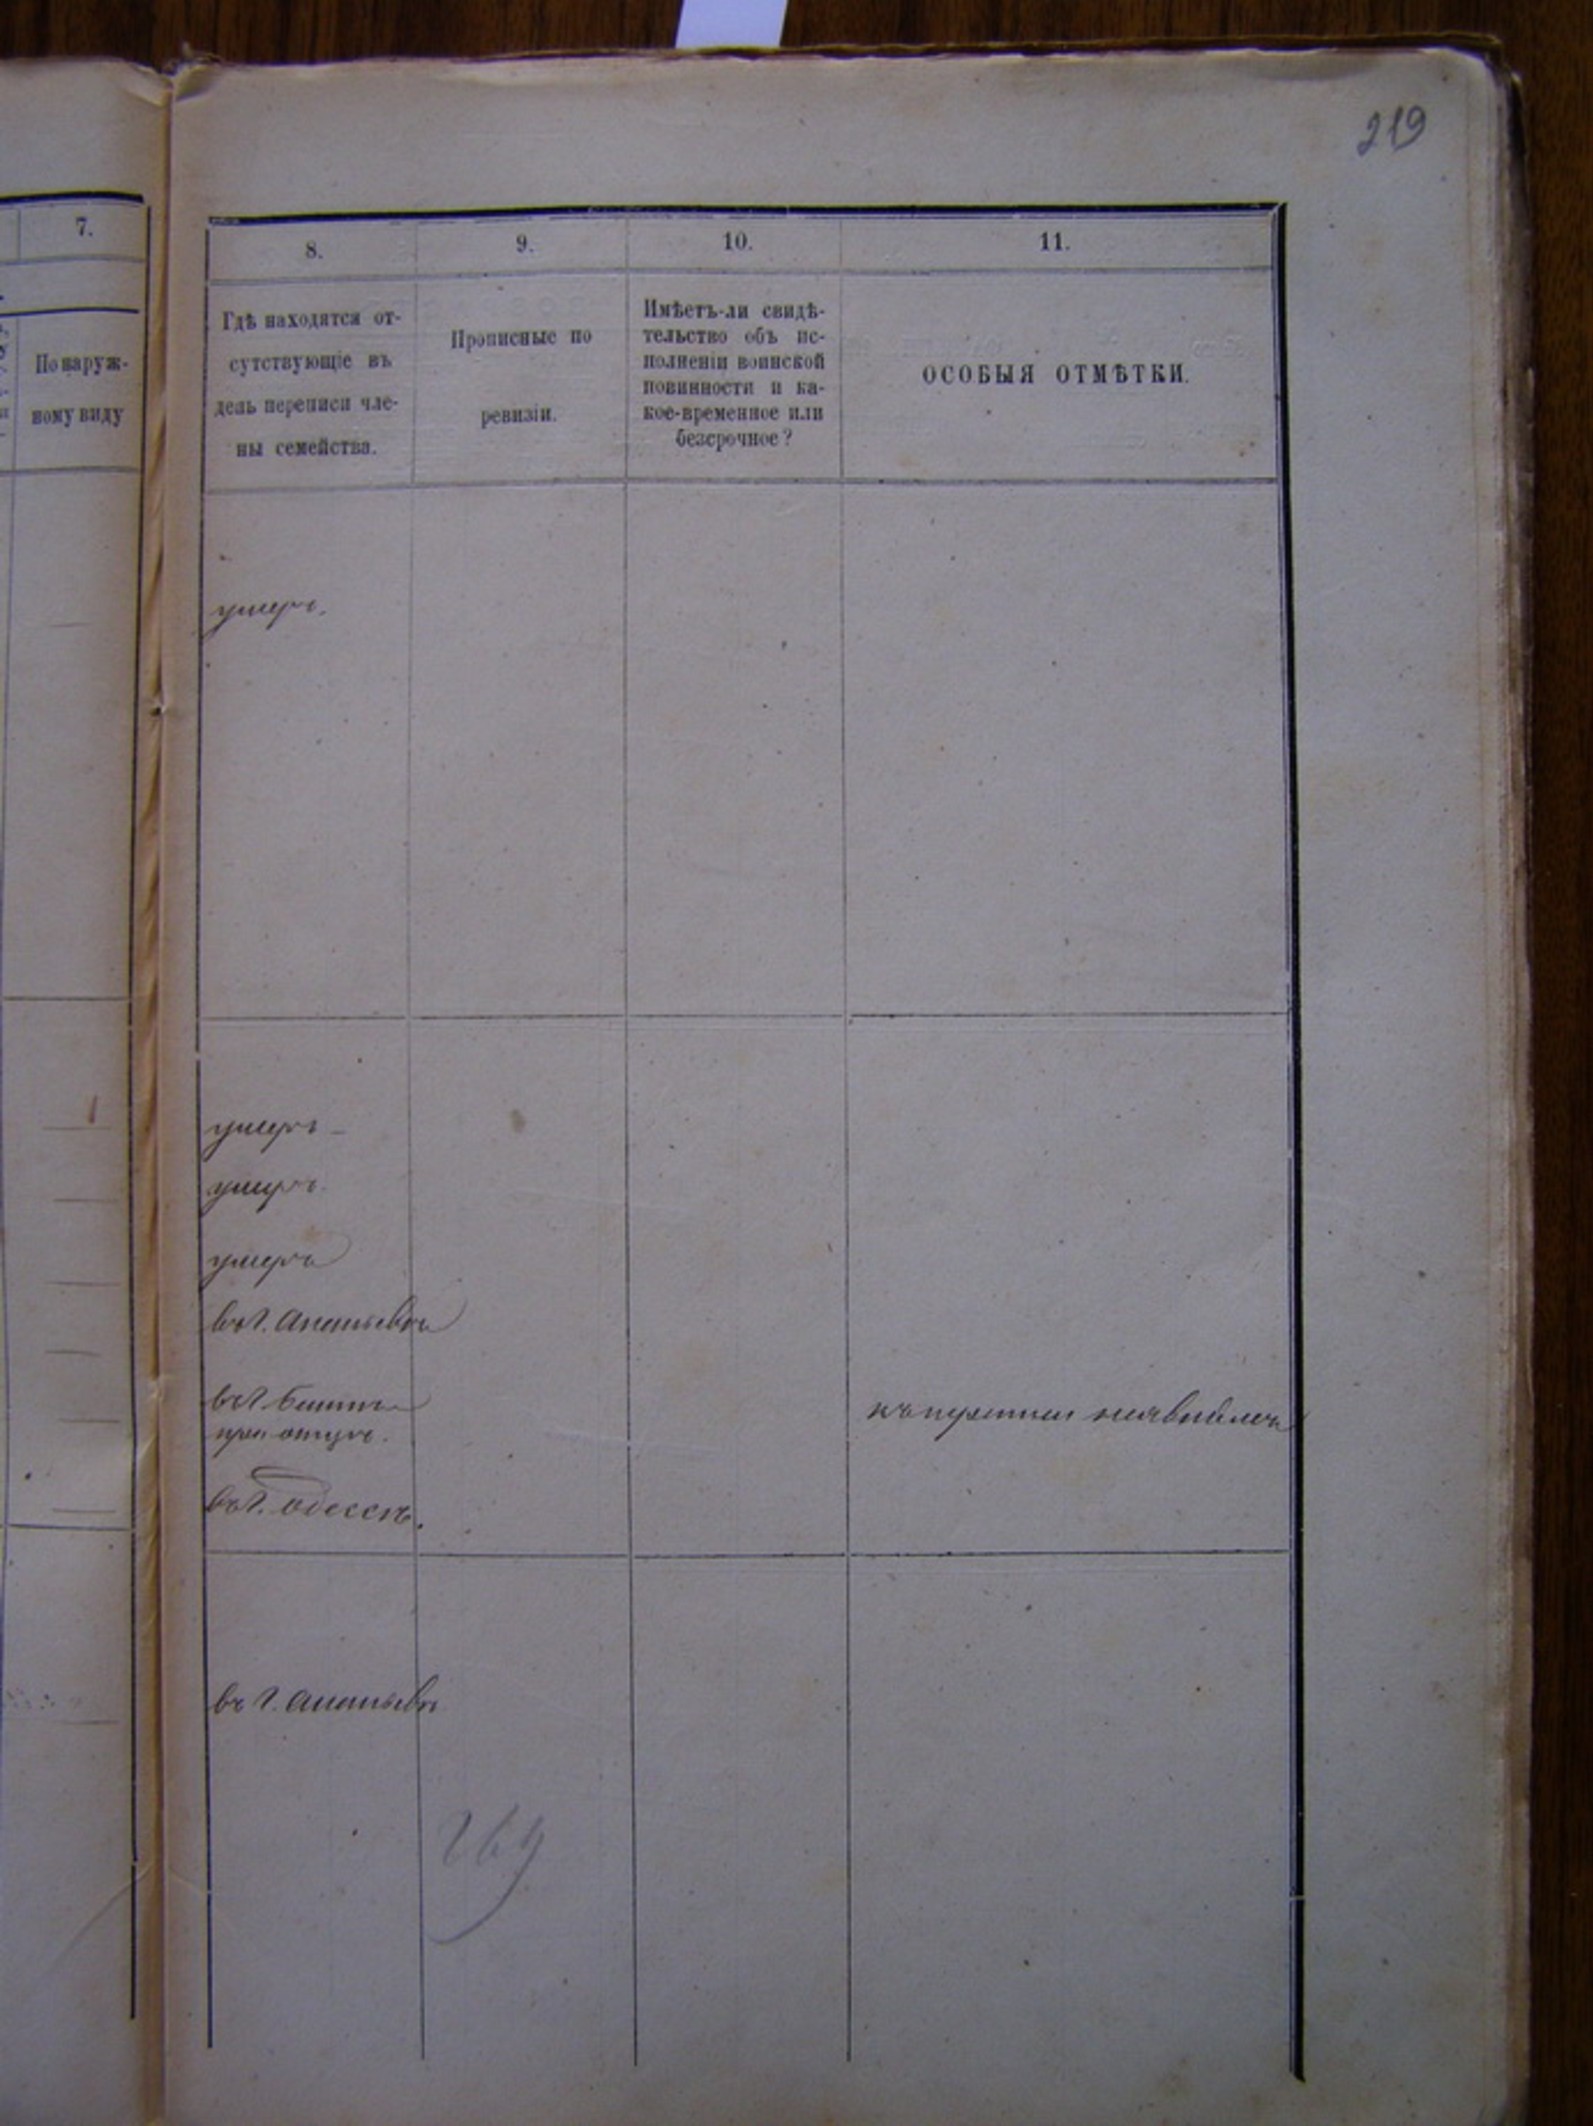 219
7.
По наруж-
ному виду
8.
9.
10.
11.
Гдѣ находятся от-
сутствующіе въ
день переписи чле-
ны семейства.
Прописные по
ревизіи.
Имѣетъ-ли свидѣ-
тельство объ ис-
полненіи воинской
повинности и ка-
кое-временное или
безсрочное?
ОСОБЫЯ ОТМѢТКИ.
умеръ.
умеръ
умеръ.
умеръ
въ г. Ананьевѣ
въ г.
къ переписи неявился
въ г. Одессѣ.
въ г. Ананьевѣ
269